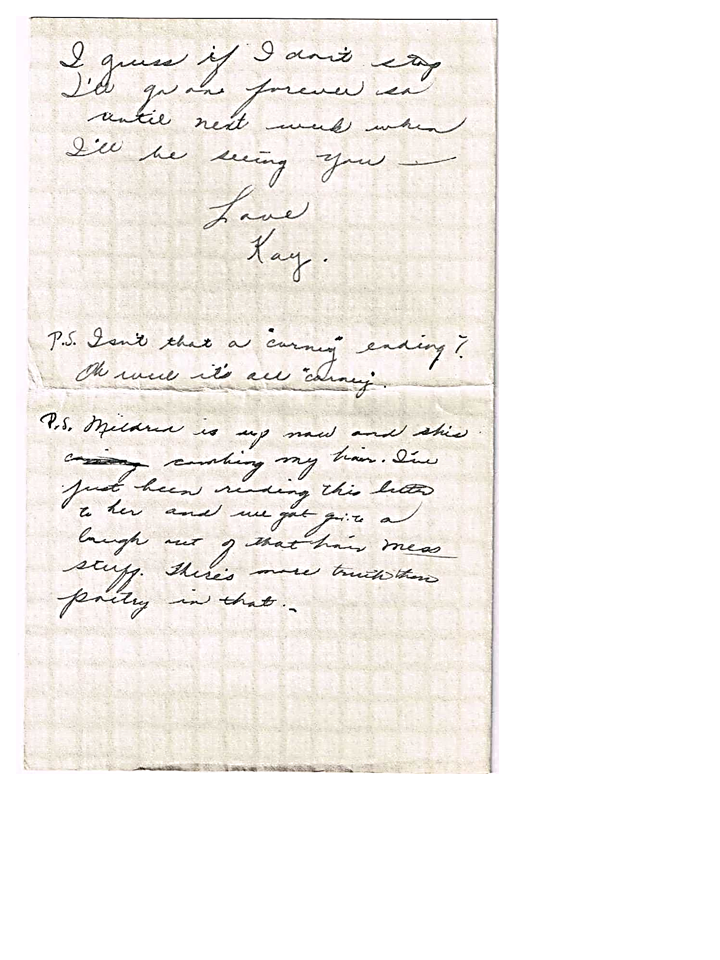 I guess if I don't stop
I'll go one forever so
until next week when
I'll be seeing you —
Love
Kay.
P.S. Isn't that a "corney" ending?
Oh well it's all "corney".
P.S. Mildred is up now and she's
combing my hair. I've
just been reading this letter
to her and we got quite a
laugh out of that hair mess
stuff. There's more truth than
poetry in that.